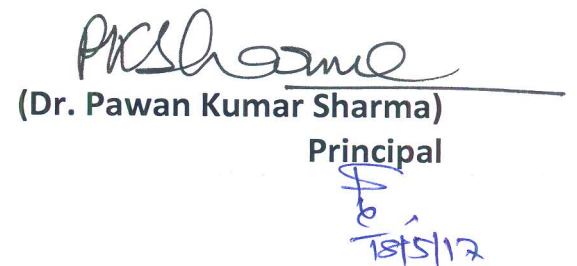 PKSharma
(Dr. Pawan Kumar Sharma)
Principal
18/5/17